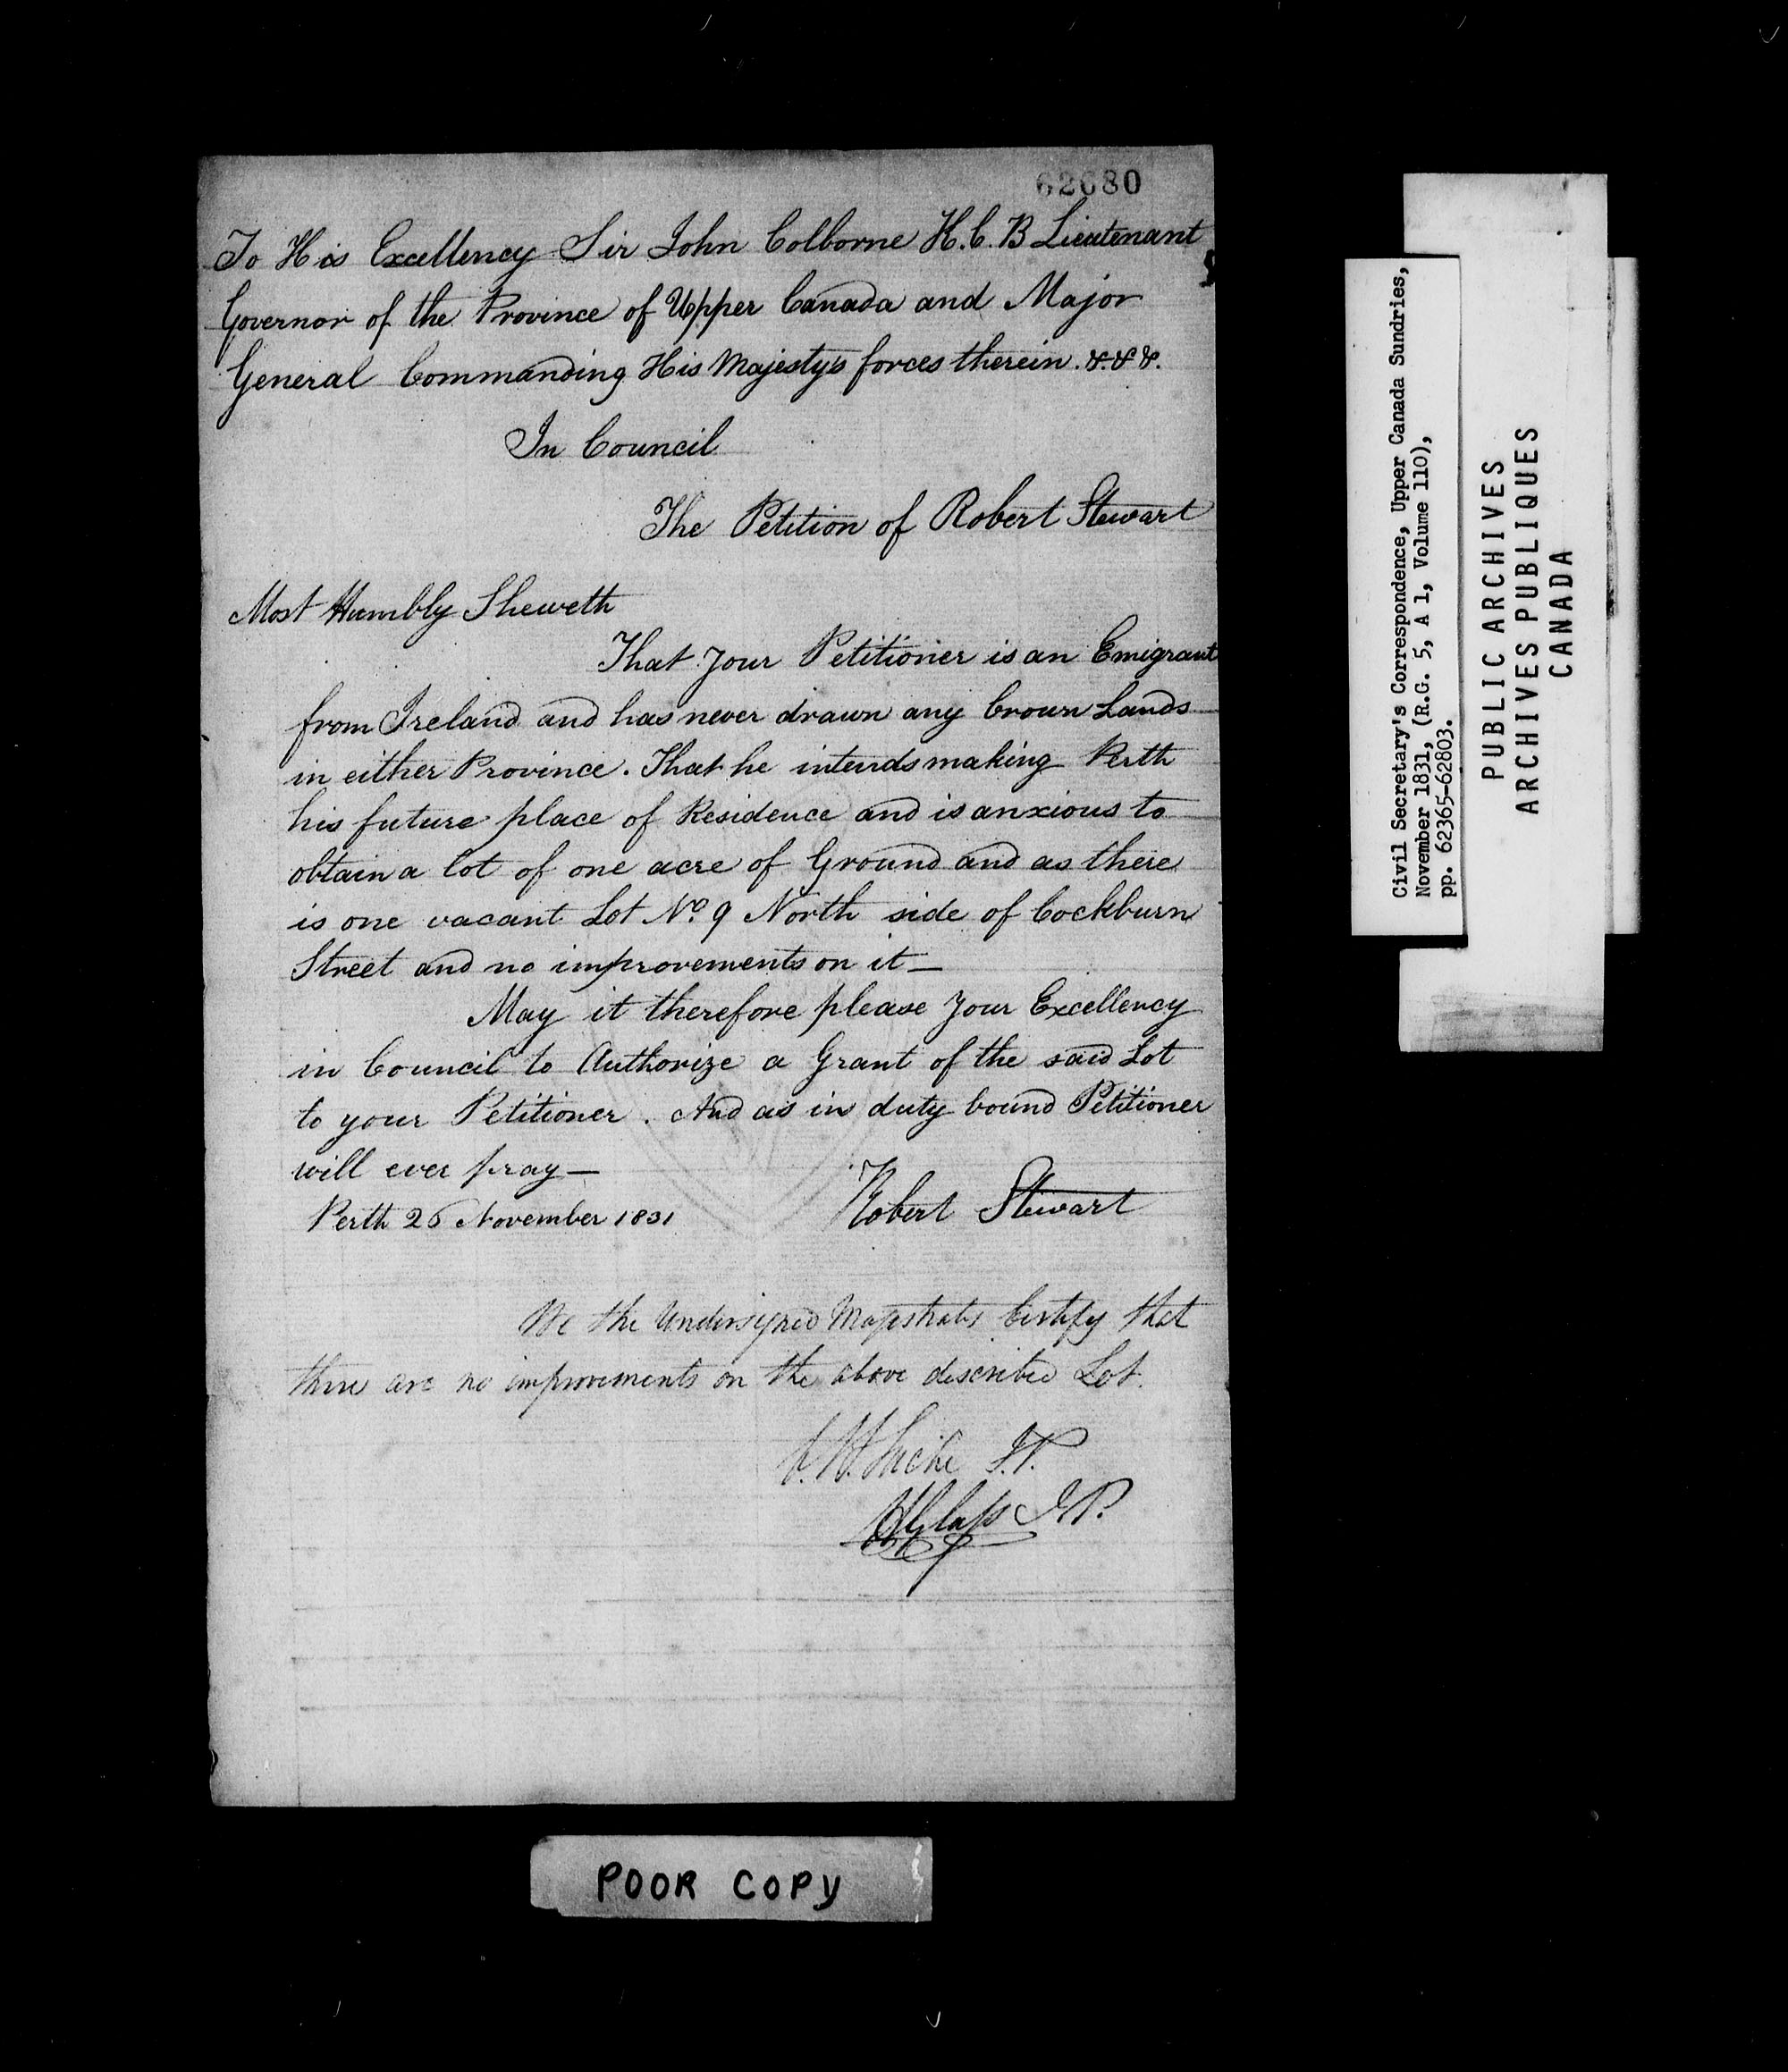 62680
To His Excellency Sir John Colborne K.C.B Lieutenant
Governor of the Province of Upper Canada and Major
General Commanding His Majesty's forces therein. &.&.&.
In Council
The Petition of Robert Stewart
Most Humbly Sheweth
That Your Petitioner is an Emigrant
from Ireland and has never drawn any Crown Lands
in either Province. That he intends making Perth
his future place of Residence and is anxious to
obtain a lot of one acre of Ground and as there
is one vacant Lot No. 9 North side of Cockburn
Street and no improvements on it —
May it therefore please Your Excellency
in Council to Authorize a Grant of the said Lot
to your Petitioner. And as in duty bound Petitioner
will ever pray —
Perth 26 November 1831
Robert Stewart
We the Undersigned Magistrates Certify that
there are no improvements on the above described Lot.
J.P.
Glass J.P.
Civil Secretary's Correspondence, Upper Canada Sundries,
November 1831, (R.G. 5, A 1, Volume 110),
pp. 62365-62803.
PUBLIC ARCHIVES
ARCHIVES PUBLIQUES
CANADA
POOR COPY